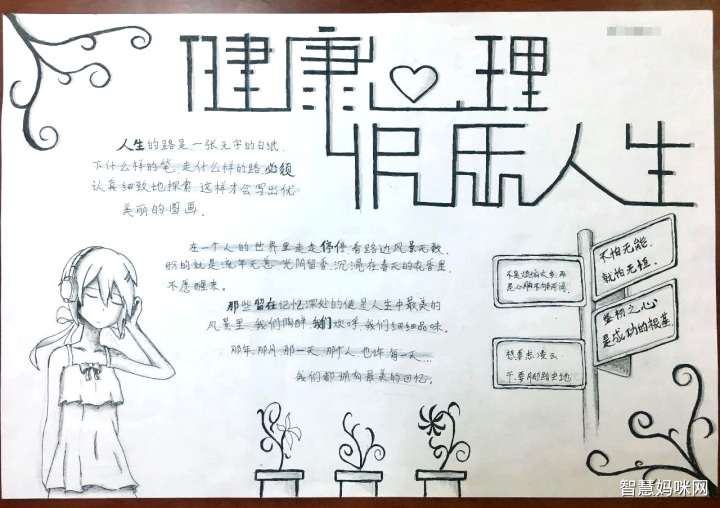 健康心理
快乐人生
人生的路是一张无字的白纸，
下什么样的笔，走什么样的路必须
认真细致地探索，这样才会写出优
美丽的图画。
在一个人的世界里走走停停看路边风景无数
盼的就是流年无恙，光阴留香，沉浸在春天的花香里
不愿醒来。
那些留在记忆深处的便是人生中最美的
风景里，我们陶醉我们欢呼，我们细细品味，
那年，那月，那一天，那个人，也许每一天……
我们都拥有最美的回忆。
不怕无能，
就怕无恒。
不是烦恼太多，而
是心胸不够开阔。
坚韧之心
是成功的根基
想要志凌云
于要脚踏实地
智慧妈咪网